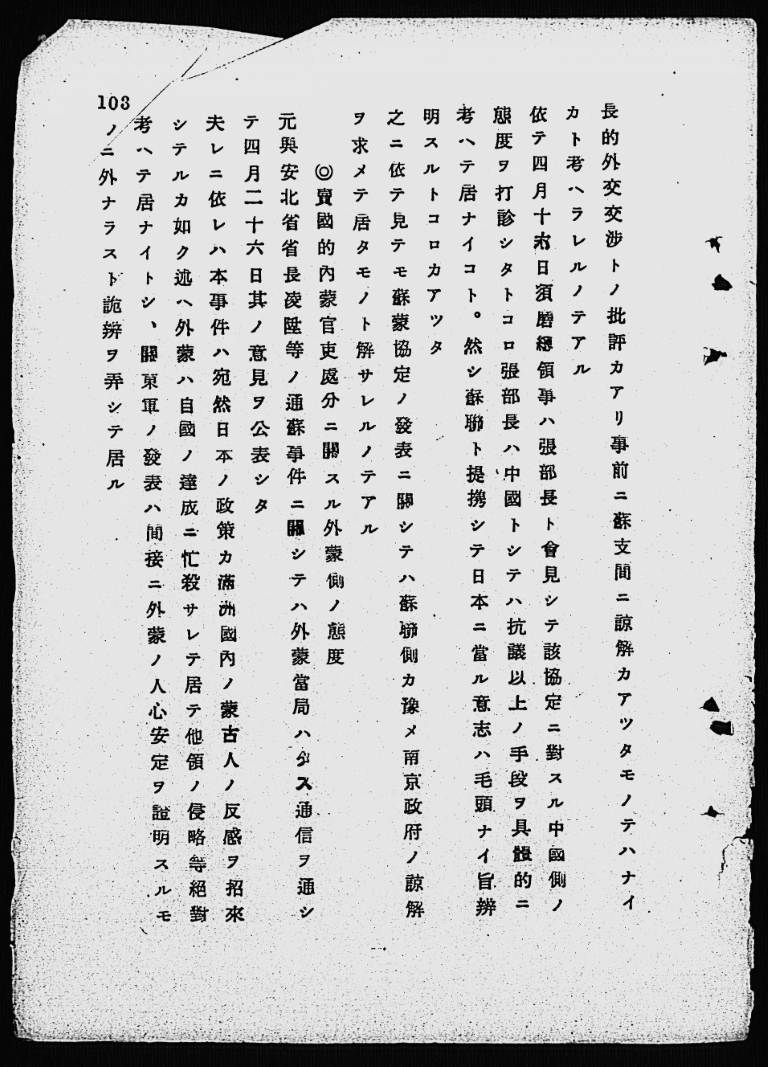 長的外交交渉トノ批評カアリ事前ニ蘇支間ニ諒解カアツタモノテハナイ
カト考ヘラレルノテアル
依テ四月十六日須磨總領事ハ張部長ト會見シテ該協定ニ對スル中國側ノ
態度ヲ打診シタトコロ張部長ハ中國トシテハ抗議以上ノ手段ヲ具體的ニ
考ヘテ居ナイコト。然シ蘇聯ト提携シテ日本ニ當ル意志ハ毛頭ナイ旨辨
明スルトコロカアツタ
之ニ依テ見テモ蘇蒙協定ノ發表ニ關シテハ蘇聯側カ豫メ南京政府ノ諒解
ヲ求メテ居タモノト解サレルノテアル
◎賣國的內蒙官吏處分ニ關スル外蒙側ノ態度
元興安北省省長凌陞等ノ通蘇事件ニ關シテハ外蒙當局ハタス通信ヲ通シ
テ四月二十六日其ノ意見ヲ公表シタ
夫レニ依レハ本事件ハ宛然日本ノ政策カ滿洲國內ノ蒙古人ノ反感ヲ招來
シテルカ如ク述ヘ外蒙ハ自國ノ達成ニ忙殺サレテ居テ他領ノ侵略等絕對
考ヘテ居ナイトシ、關東軍ノ發表ハ間接ニ外蒙ノ人心安定ヲ證明スルモ
ノニ外ナラスト詭辨ヲ弄シテ居ル
103